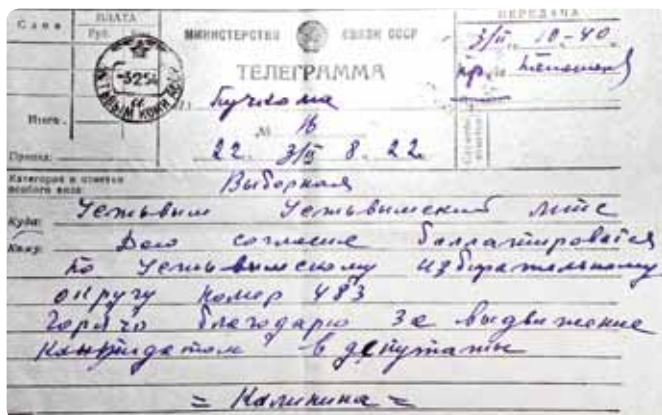 Слов ПЛАТА ПЕРЕДАЧА
Руб. МИНИСТЕРСТВО СВЯЗИ СССР 3/II 10-40
ТЕЛЕГРАММА
-3 2 54
Пучкома
Итого № 16
22 3/II 8. 22
Категория и отметки особого вида: Выборная
Куда: Устьвым Устьвымский
Кому: Даю согласие баллатироватся
по Устьвымскому избирательному
округу номер 483
Горячо благодарю за выдвижение
кандидатом в депутаты
= Калинина =